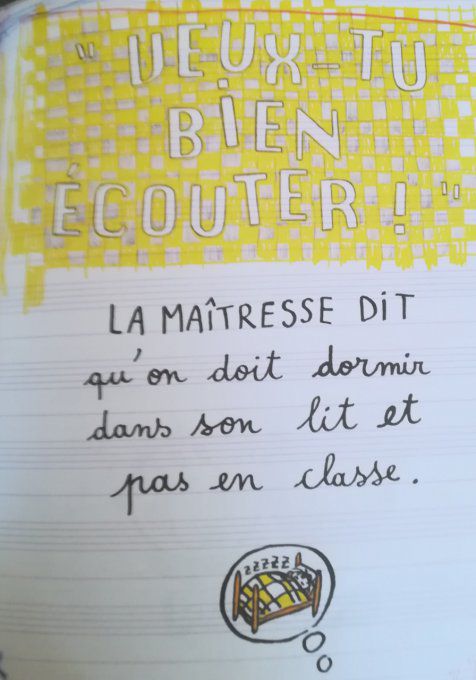 " VEUX-TU
BiEN
ÉCOUTER ! "
LA MAÎTRESSE DiT
qu'on doit dormir
dans son lit et
pas en classe.
zzzzz